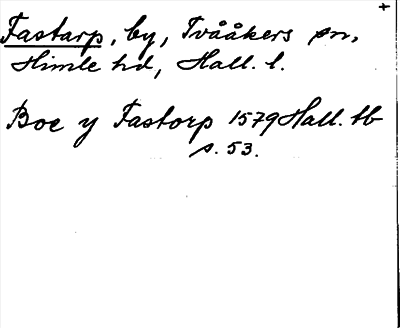 +
Fastarp, by, Tvååkers sn,
Himle hd, Hall. l.
Boe y Fastorp 1579 Hall. tb
s. 53.